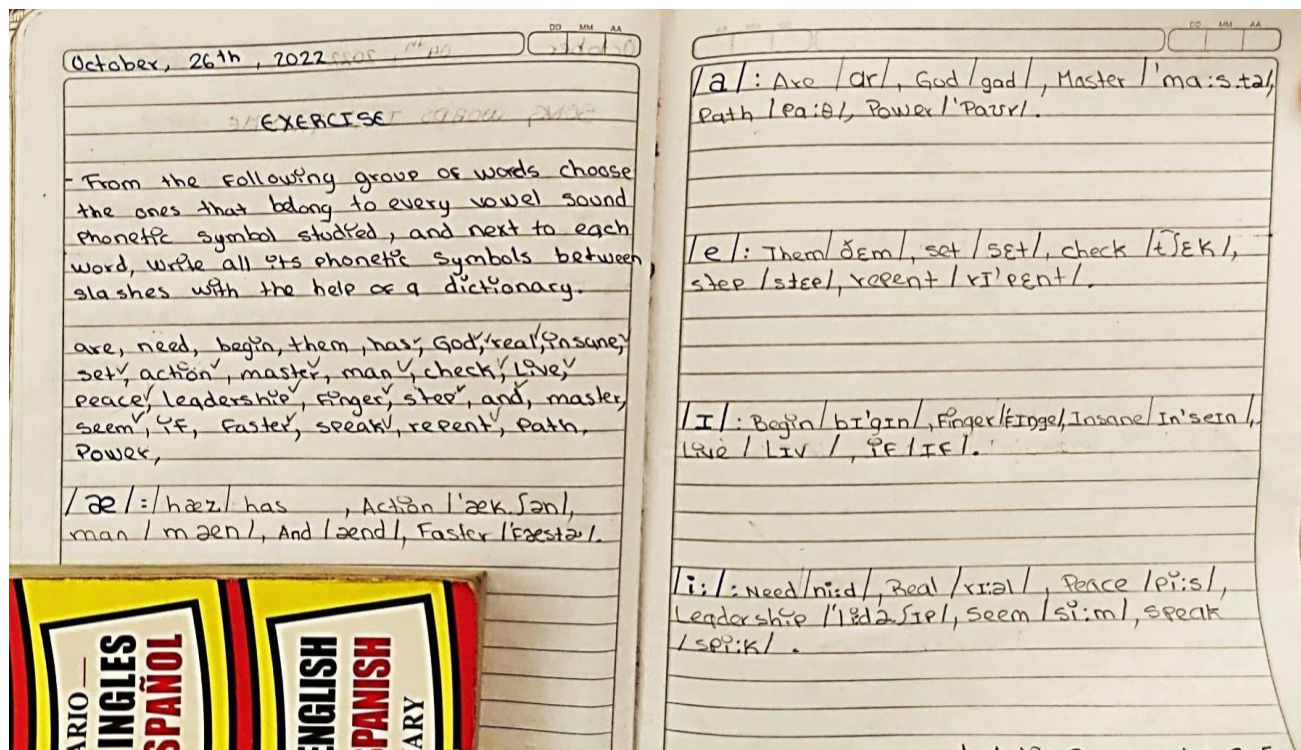 DD MM AA
October, 26th, 2022
EXERCISE
- From the following group of words choose
the ones that belong to every vowel sound
phonetic symbol studied, and next to each
word, write all its phonetic symbols between
slashes with the help of a dictionary.
are, need, begin, them, has, God, real, insane,
set, action, master, man, check, Live,
peace, leadership, finger, step, and, master,
seem, if, faster, speak, repent, path,
Power,
/æ/: /hæz/ has , Action /'æk.ʃən/,
man /mæn/, And /ænd/, Faster /'fæstə/.
INGLES
ENGLISH
SPANISH
DD MM AA
/a/: Are /ar/, God /gad/, Master /'ma:s.tə/,
Path /pa:θ/, Power /'Paʊr/.
/e/: Them /ðɛm/, set /sɛt/, check /tʃɛk/,
step /stɛp/, repent /rɪ'pɛnt/.
/ɪ/: Begin /bɪ'gɪn/, Finger /fɪngə/, Insane /ɪn'seɪn/,
Live /Lɪv/, if /ɪf/.
/i:/: Need /ni:d/, Real /rɪ:əl/, Peace /pi:s/,
Leadership /'li:də.ʃɪp/, seem /si:m/, speak
/spi:k/.